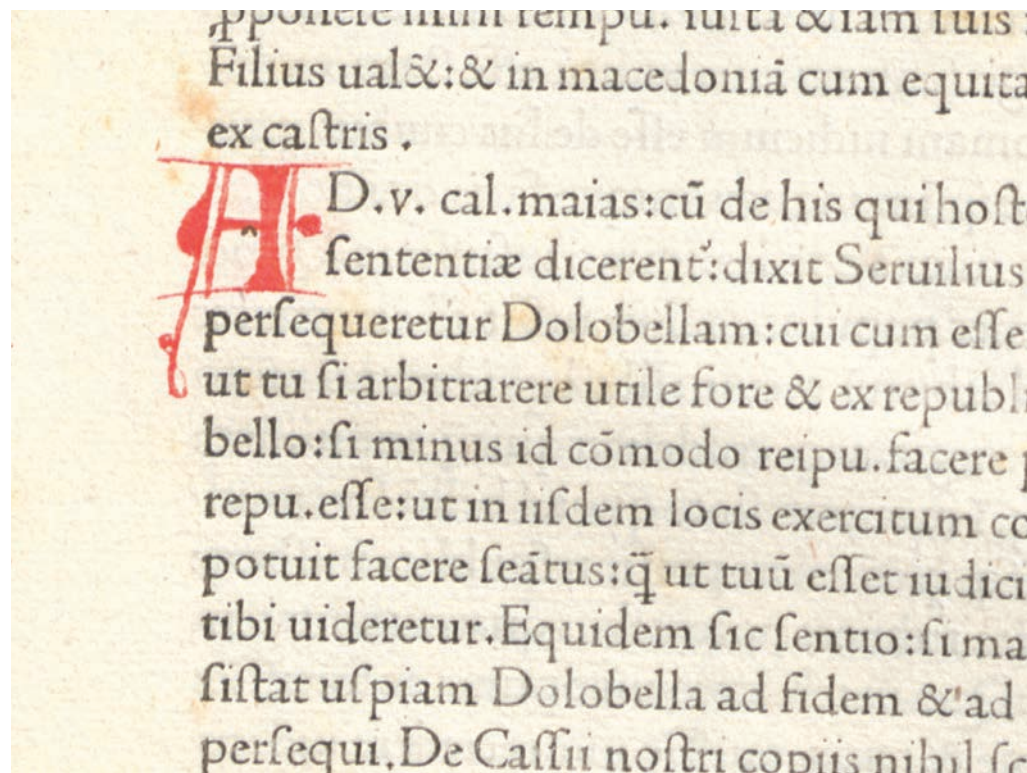 ꝓponere mihi tempu. iusta & iam suis
Filius ual&:& in macedoniā cum equita
ex caſtris .
AD.v. cal.maias:cū de his qui hoſt
ſententiæ dicerent᷑:dixit Seruilius
perſequeretur Dolobellam:cui cum eſſe
ut tu ſi arbitrarere utile fore & ex republi
bello:ſi minus id cōmodo reipu.facere p
repu.eſſe:ut in iiſdem locis exercitum co
potuit facere ſeātus:q̄ ut tuū eſſet iudici
tibi uideretur.Equidem ſic ſentio:ſi ma
ſiſtat uſpiam Dolobella ad fidem & ad
perſequi.De Caſſii noſtri copiis nihil ſc